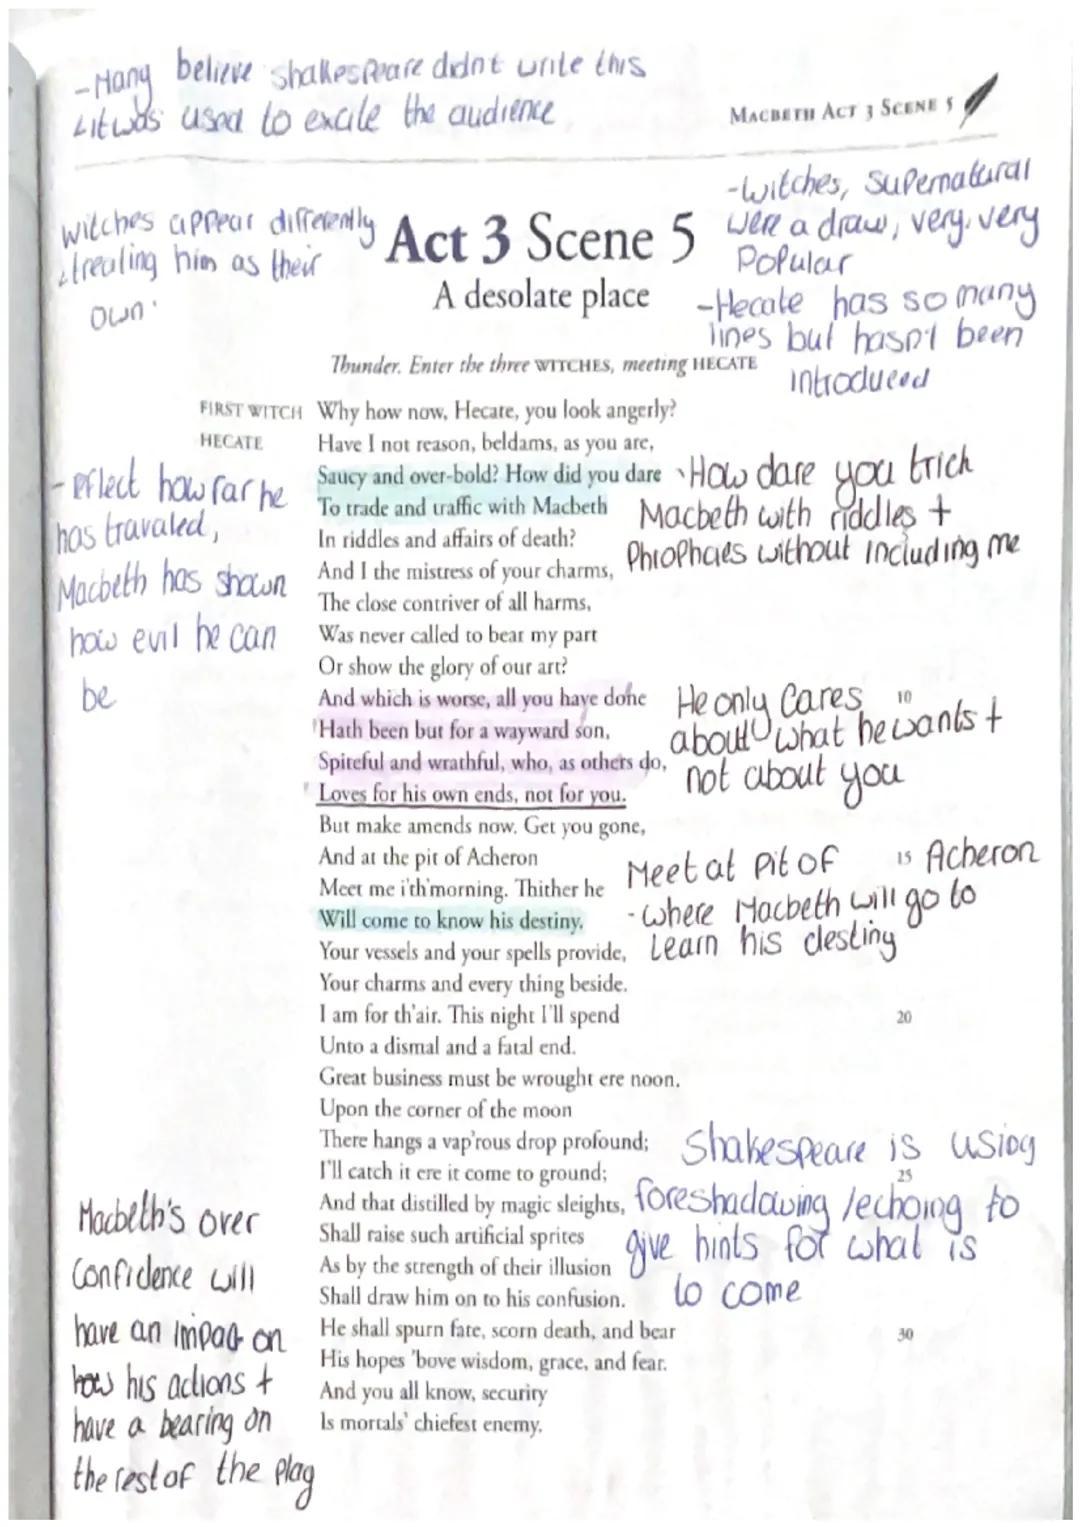 -Many believe shakespeare didnt write this
↳it was used to excite the audience
MACBETH ACT 3 SCENE 5
witches appear differently
↳treating him as their
own.
-witches, supernatural
were a draw, very, very
Popular
-Hecate has so many
lines but hasn't been
introduced
Act 3 Scene 5
A desolate place
Thunder. Enter the three WITCHES, meeting HECATE
FIRST WITCH Why how now, Hecate, you look angerly?
HECATE Have I not reason, beldams, as you are,
Saucy and over-bold? How did you dare
To trade and traffic with Macbeth
In riddles and affairs of death?
And I the mistress of your charms,
The close contriver of all harms,
Was never called to bear my part
Or show the glory of our art?
And which is worse, all you have done 10
Hath been but for a wayward son,
Spiteful and wrathful, who, as others do,
Loves for his own ends, not for you.
But make amends now. Get you gone,
And at the pit of Acheron 15
Meet me i'th'morning. Thither he
Will come to know his destiny.
Your vessels and your spells provide,
Your charms and every thing beside.
I am for th'air. This night I'll spend 20
Unto a dismal and a fatal end.
Great business must be wrought ere noon.
Upon the corner of the moon
There hangs a vap'rous drop profound;
I'll catch it ere it come to ground; 25
And that distilled by magic sleights,
Shall raise such artificial sprites
As by the strength of their illusion
Shall draw him on to his confusion.
He shall spurn fate, scorn death, and bear 30
His hopes 'bove wisdom, grace, and fear.
And you all know, security
Is mortals' chiefest enemy.
- reflect how far he
has travaled,
Macbeth has shown
how evil he can
be
How dare you trick
Macbeth with riddles +
Phrophcies without including me
He only Cares
about what he wants +
not about you
Meet at Pit of Acheron
- where Macbeth will go to
Learn his destiny
Shakespeare is using
foreshadowing /echoing to
give hints for what is
to come
Macbeth's over
Confidence will
have an impact on
how his actions +
have a bearing on
the rest of the play